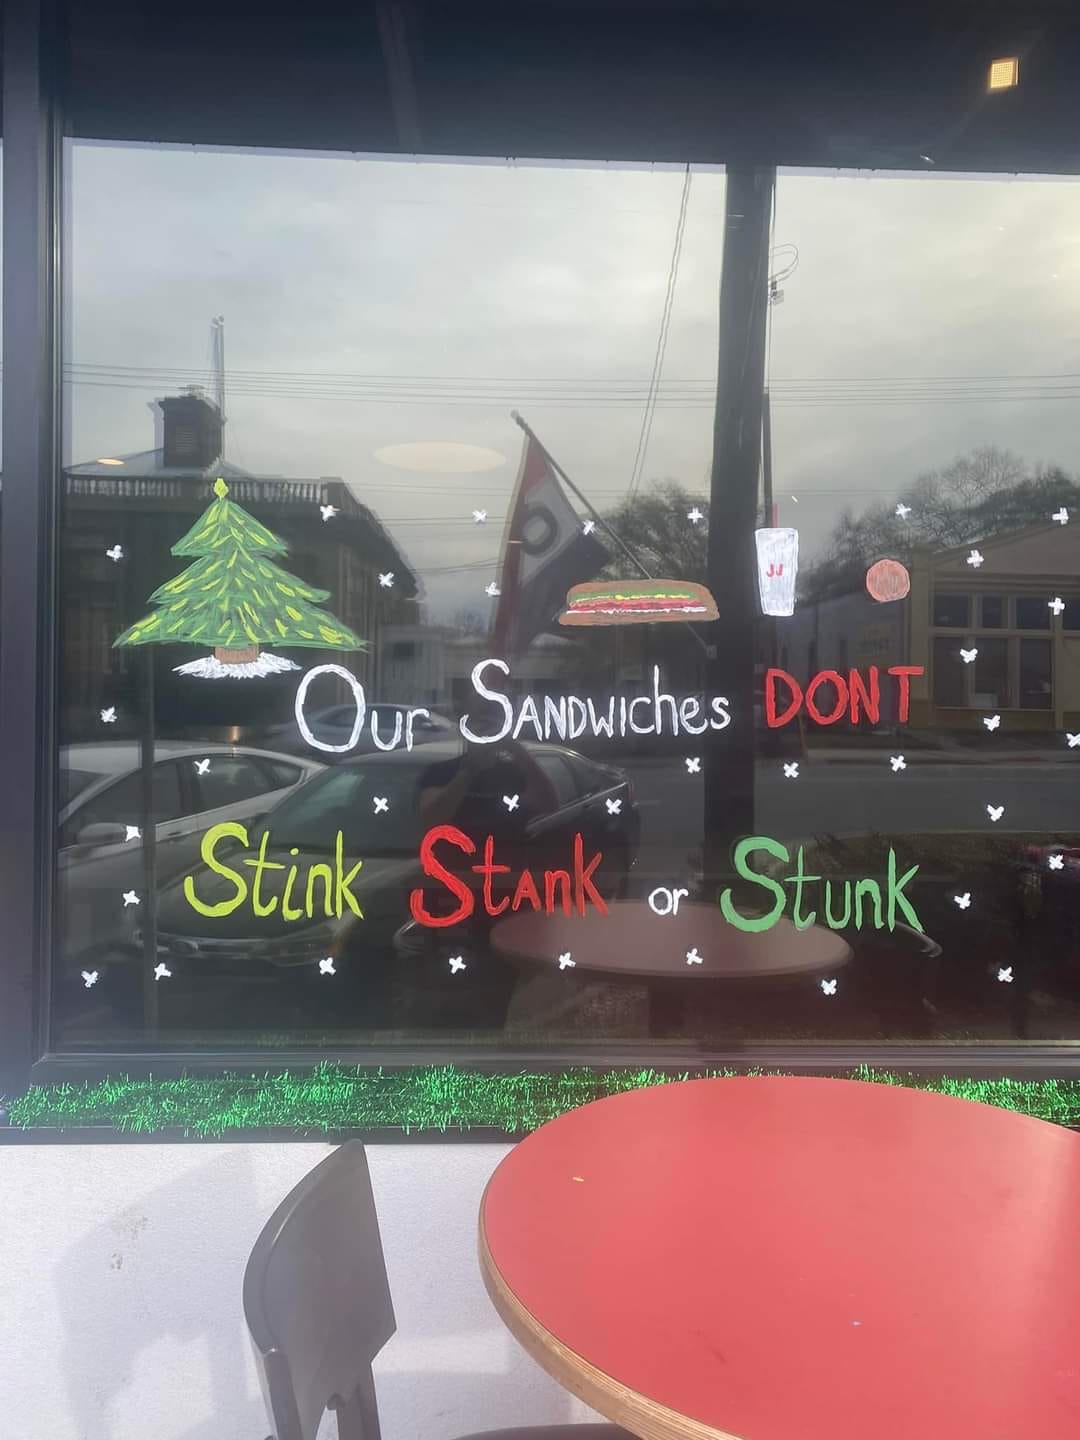 JJ
Our Sandwiches DONT
Stink Stank or Stunk